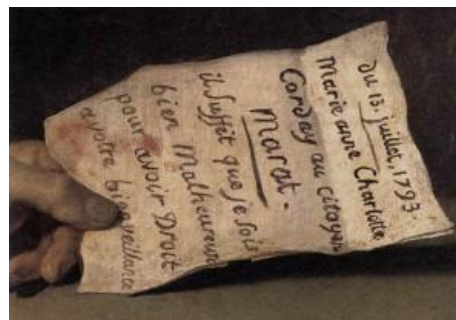 du 13. juillet, 1793
Marie anne Charlotte
Corday au citoyen
marat.
il suffit que je sois
bien Malheureuse
pour avoir Droit
a votre bienveillance